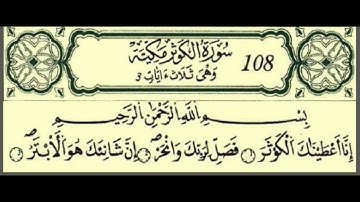 سُورَةُ الْكَوْثَرِ مَكِّيَّةٌ
وَهِيَ ثَلَاثُ ءَايَاتٍ 3
108
بِسْمِ اللَّهِ الرَّحْمَٰنِ الرَّحِيمِ
إِنَّا أَعْطَيْنَاكَ الْكَوْثَرَ ۝ فَصَلِّ لِرَبِّكَ وَانْحَرْ ۝ إِنَّ شَانِئَكَ هُوَ الْأَبْتَرُ ۝